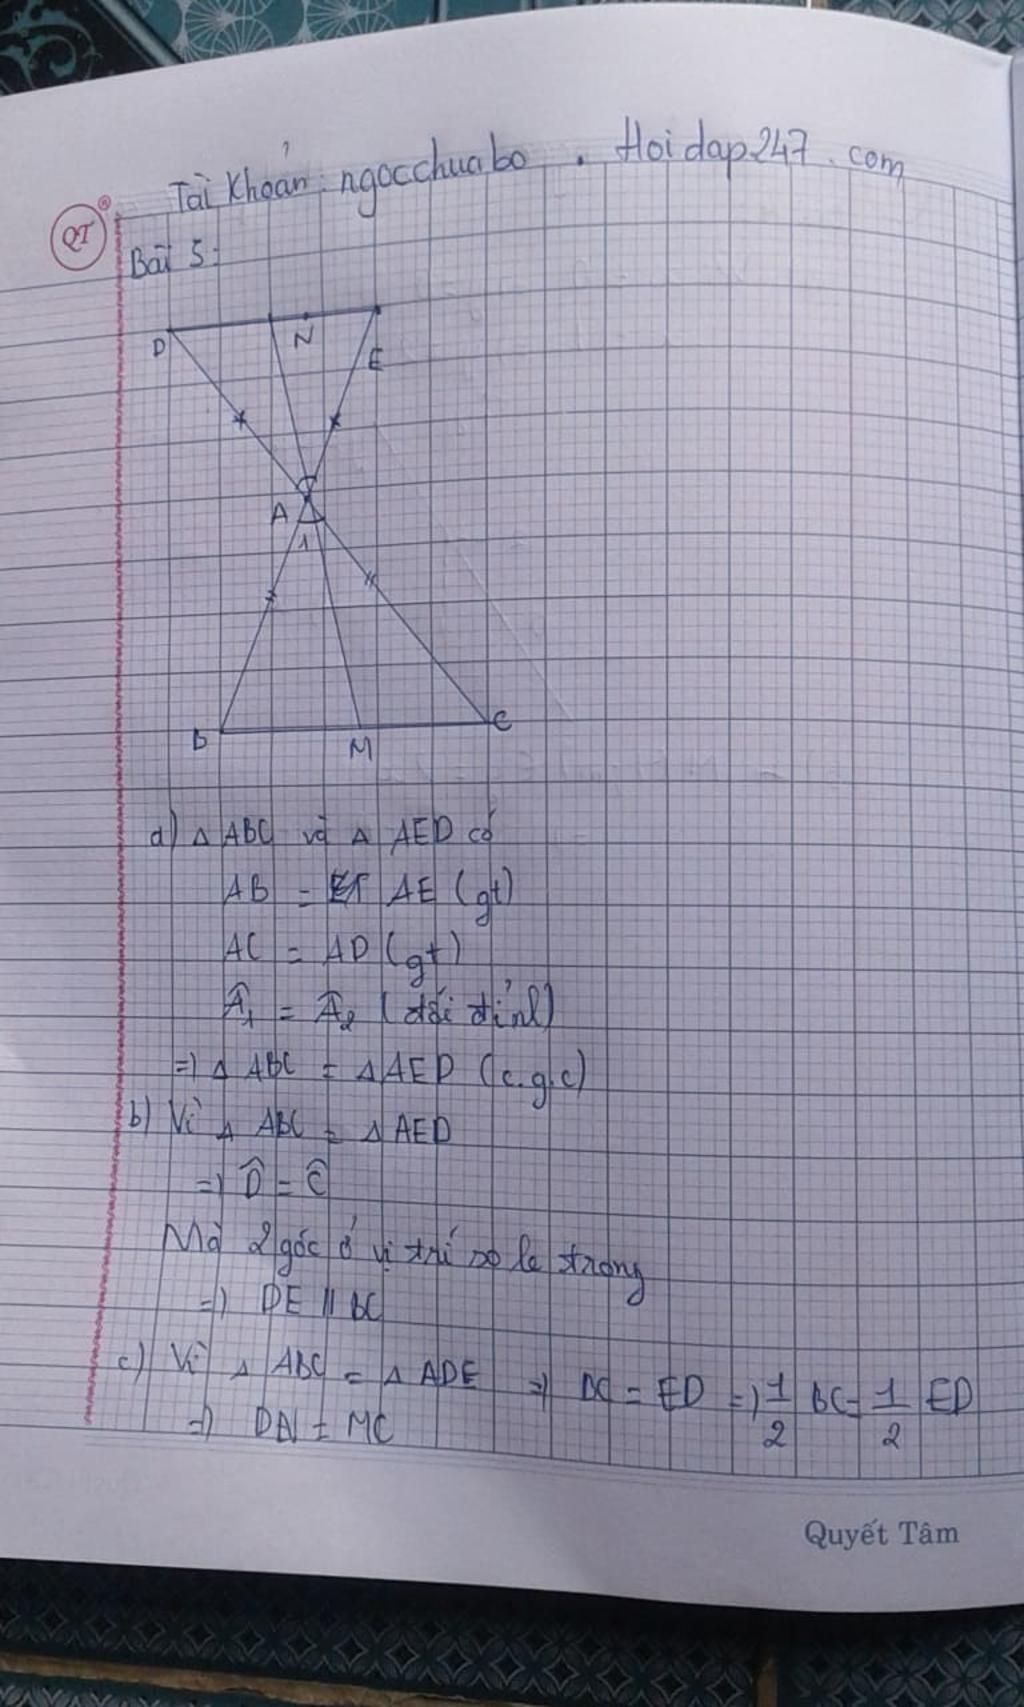 Tài khoản: ngocchuabo . Hoidap247.com
QT
Bài 5:
D
N
E
A
1
B
M
C
a) Δ ABC và Δ AED có
AB = AE (gt)
AC = AD (gt)
Â₁ = Â₂ (đối đỉnh)
=) Δ ABC = Δ AED (c.g.c)
b) Vì Δ ABC = Δ AED
=) D̂ = Ĉ
Mà 2 góc ở vị trí so le trong
=) DE // BC
c) Vì Δ ABC = Δ ADE =) BC = ED =) 1/2 BC = 1/2 ED
=) DN = MC
Quyết Tâm